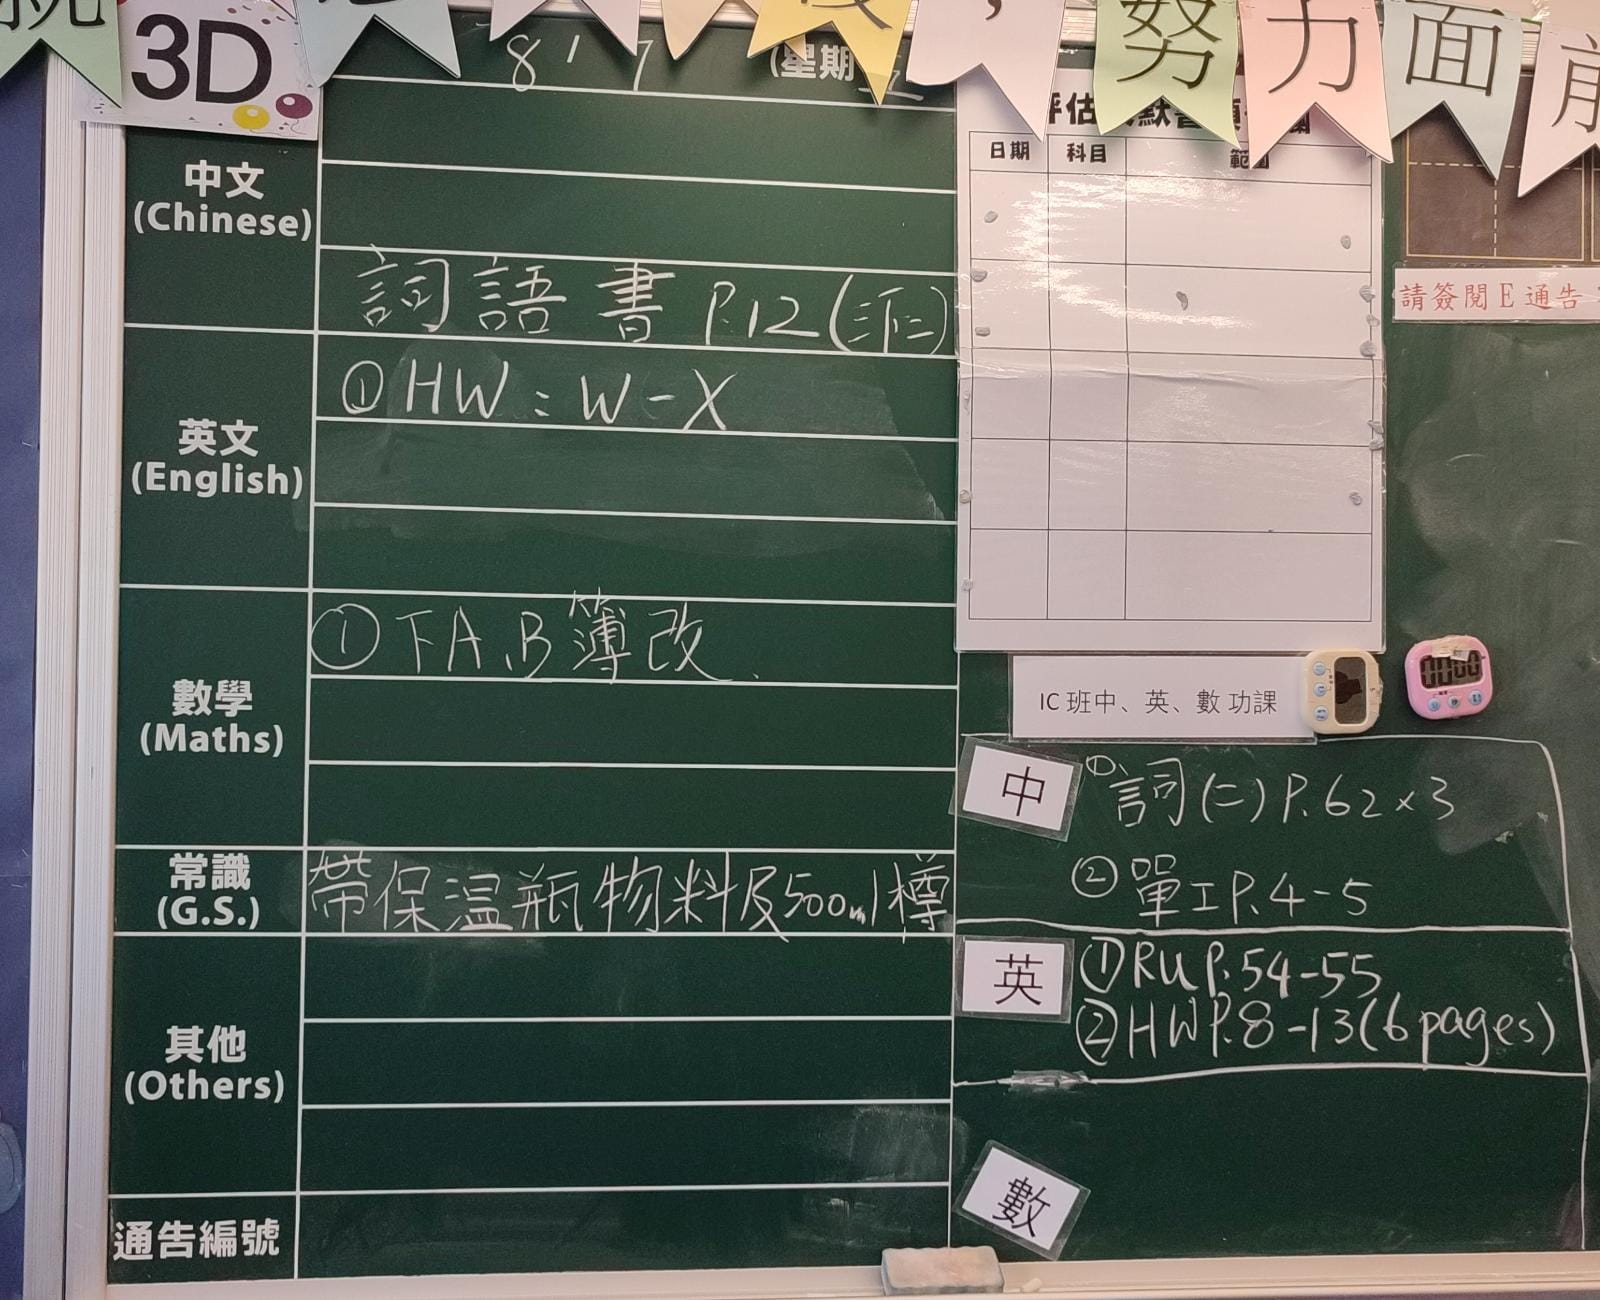 3D
努力面前
8 7 (星期五
中文
(Chinese)
詞語書 P.12 (派)
英文
(English)
① HW : W - X
數學
(Maths)
① 下A、B簿改
常識
(G.S.)
帶保温瓶物料及500ml樽
其他
(Others)
通告編號
日期 科目 範圍
請簽閱E通告
IC 班中、英、數 功課
00:00
中
① 詞(二) P.62 x 3
② 單工P.4-5
英
① RU P.54-55
② HW P.8-13 (6 pages)
數